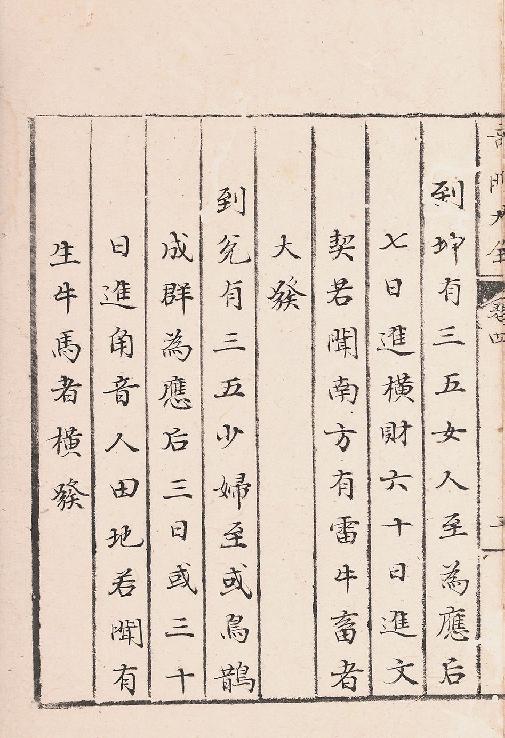 到坤有三五女人至為應后
七日進橫財六十日進文
契若聞南方有雷牛畜者
大發
到兌有三五少婦至或鳥鵲
成群為應后三日或三十
日進角音人田地若聞有
生牛馬者橫發